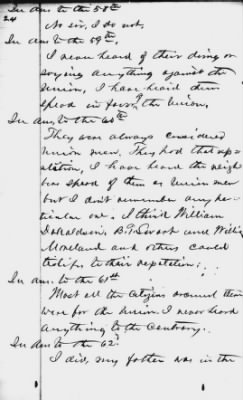 In ans to the 58th
24
No sir, I do not,
In ans to the 59th,
I never heard of their doing or
saying anything against the
Union, I have heard them
speak in favor of the Union,
In ans, to the 60th
They were always considered
Union men. They had that rep-
utation, I have heard the neigh
bors speak of them as Union men
but I don't remember any par-
ticular one. I think William
Donaldson, B.T. and Willi
Moreland and others could
testify to their reputation;
In ans. to the 61st
Most all the citizens around them
were for the Union. I never heard
anything to the contrary.
In ans to the 62d
I did, my father was in the